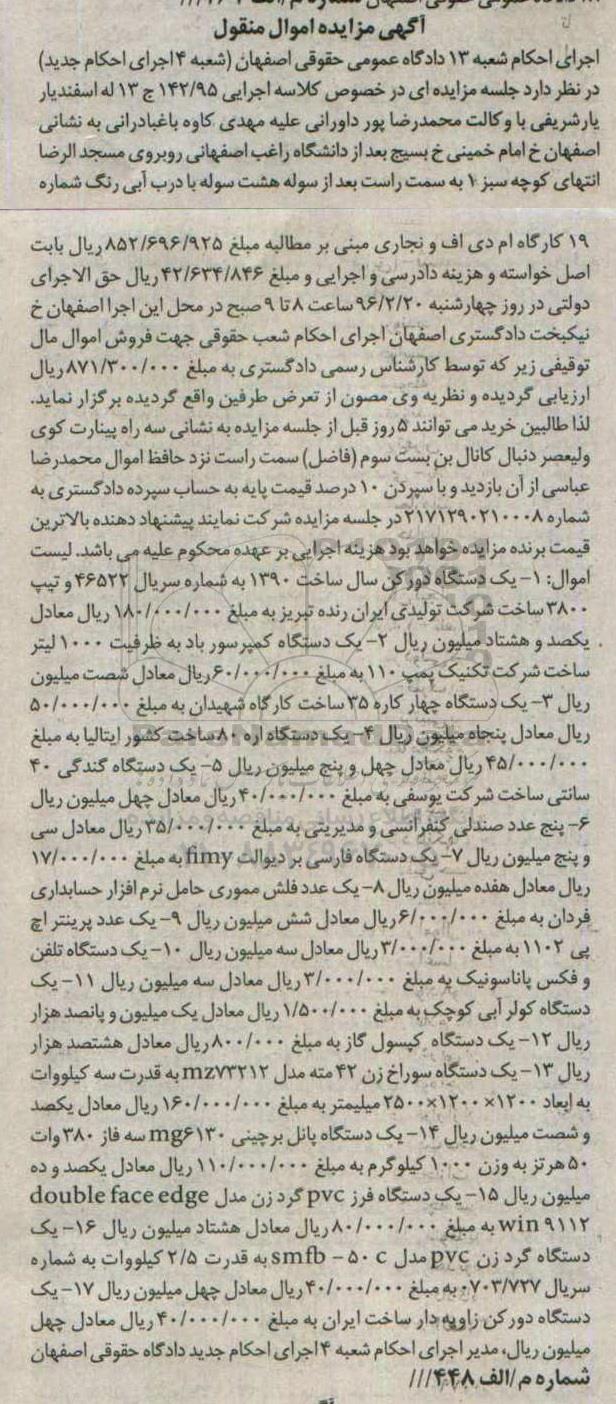 آگهی مزایده اموال منقول
اجرای احکام شعبه ۱۳ دادگاه عمومی حقوقی اصفهان (شعبه ۴ اجرای احکام جدید)
در نظر دارد جلسه مزایده ای در خصوص کلاسه اجرایی ۱۴۲/۹۵ ج ۱۳ له اسفندیار
یارشریفی با وکالت محمدرضا پور داورانی علیه مهدی کاوه باغبادرانی به نشانی
اصفهان خ امام خمینی خ بسیج بعد از دانشگاه راغب اصفهانی روبروی مسجد الرضا
انتهای کوچه سبز ۱ به سمت راست بعد از سوله هشت سوله با درب آبی رنگ شماره
۱۹ کارگاه ام دی اف و نجاری مبنی بر مطالبه مبلغ ۸۵۲/۶۹۶/۹۲۵ ریال بابت
اصل خواسته و هزینه دادرسی و اجرایی و مبلغ ۴۲/۶۳۴/۸۴۶ ریال حق الاجرای
دولتی در روز چهارشنبه ۹۶/۲/۲۰ ساعت ۸ تا ۹ صبح در محل این اجرا اصفهان خ
نیکبخت دادگستری اصفهان اجرای احکام شعب حقوقی جهت فروش اموال مال
توقیفی زیر که توسط کارشناس رسمی دادگستری به مبلغ ۸۷۱/۳۰۰/۰۰۰ ریال
ارزیابی گردیده و نظریه وی مصون از تعرض طرفین واقع گردیده برگزار نماید.
لذا طالبین خرید می توانند ۵ روز قبل از جلسه مزایده به نشانی سه راه پینارت کوی
ولیعصر دنبال کانال بن بست سوم (فاضل) سمت راست نزد حافظ اموال محمدرضا
عباسی از آن بازدید و با سپردن ۱۰ درصد قیمت پایه به حساب سپرده دادگستری به
شماره ۲۱۷۱۲۹۰۲۱۰۰۰۸ در جلسه مزایده شرکت نمایند پیشنهاد دهنده بالاترین
قیمت برنده مزایده خواهد بود هزینه اجرایی بر عهده محکوم علیه می باشد. لیست
اموال: ۱- یک دستگاه دورکن سال ساخت ۱۳۹۰ به شماره سریال ۴۶۵۲۲ و تیپ
۳۸۰۰ ساخت شرکت تولیدی ایران رنده تبریز به مبلغ ۱۸۰/۰۰۰/۰۰۰ ریال معادل
یکصد و هشتاد میلیون ریال ۲- یک دستگاه کمپرسور باد به ظرفیت ۱۰۰۰ لیتر
ساخت شرکت تکنیک پمپ ۱۱۰ به مبلغ ۶۰/۰۰۰/۰۰۰ ریال معادل شصت میلیون
ریال ۳- یک دستگاه چهار کاره ۳۵ ساخت کارگاه شهیدان به مبلغ ۵۰/۰۰۰/۰۰۰
ریال معادل پنجاه میلیون ریال ۴- یک دستگاه اره ۸۰ ساخت کشور ایتالیا به مبلغ
۴۵/۰۰۰/۰۰۰ ریال معادل چهل و پنج میلیون ریال ۵- یک دستگاه گندگی ۴۰
سانتی ساخت شرکت یوسفی به مبلغ ۴۰/۰۰۰/۰۰۰ ریال معادل چهل میلیون ریال
۶- پنج عدد صندلی کنفرانسی و مدیریتی به مبلغ ۳۵/۰۰۰/۰۰۰ ریال معادل سی
و پنج میلیون ریال ۷- یک دستگاه فارسی بر دیوالت fimy به مبلغ ۱۷/۰۰۰/۰۰۰
ریال معادل هفده میلیون ریال ۸- یک عدد فلش مموری حامل نرم افزار حسابداری
فردان به مبلغ ۶/۰۰۰/۰۰۰ ریال معادل شش میلیون ریال ۹- یک عدد پرینتر اچ
پی ۱۱۰۲ به مبلغ ۳/۰۰۰/۰۰۰ ریال معادل سه میلیون ریال ۱۰- یک دستگاه تلفن
و فکس پاناسونیک به مبلغ ۳/۰۰۰/۰۰۰ ریال معادل سه میلیون ریال ۱۱- یک
دستگاه کولر آبی کوچک به مبلغ ۱/۵۰۰/۰۰۰ ریال معادل یک میلیون و پانصد هزار
ریال ۱۲- یک دستگاه کپسول گاز به مبلغ ۸۰۰/۰۰۰ ریال معادل هشتصد هزار
ریال ۱۳- یک دستگاه سوراخ زن ۴۲ مته مدل mz۷۳۲۱۲ به قدرت سه کیلووات
به ابعاد ۱۲۰۰×۱۲۰۰×۲۵۰۰ میلیمتر به مبلغ ۱۶۰/۰۰۰/۰۰۰ ریال معادل یکصد
و شصت میلیون ریال ۱۴- یک دستگاه پانل برچینی mg۶۱۳۰ سه فاز ۳۸۰ وات
۵۰ هرتز به وزن ۱۰۰۰ کیلوگرم به مبلغ ۱۱۰/۰۰۰/۰۰۰ ریال معادل یکصد و ده
میلیون ریال ۱۵- یک دستگاه فرز pvc گرد زن مدل double face edge
win ۹۱۱۲ به مبلغ ۸۰/۰۰۰/۰۰۰ ریال معادل هشتاد میلیون ریال ۱۶- یک
دستگاه گرد زن pvc مدل smfb - ۵۰ c به قدرت ۲/۵ کیلووات به شماره
سریال ۰۷۰۳/۷۲۷ به مبلغ ۴۰/۰۰۰/۰۰۰ ریال معادل چهل میلیون ریال ۱۷- یک
دستگاه دورکن زاویه دار ساخت ایران به مبلغ ۴۰/۰۰۰/۰۰۰ ریال معادل چهل
میلیون ریال، مدیر اجرای احکام شعبه ۴ اجرای احکام جدید دادگاه حقوقی اصفهان
شماره م/الف ۴۴۸///